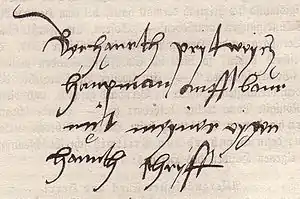 Bernharth prytwycz
haupman auff baur
mit meyner eygen
hannth schrifft